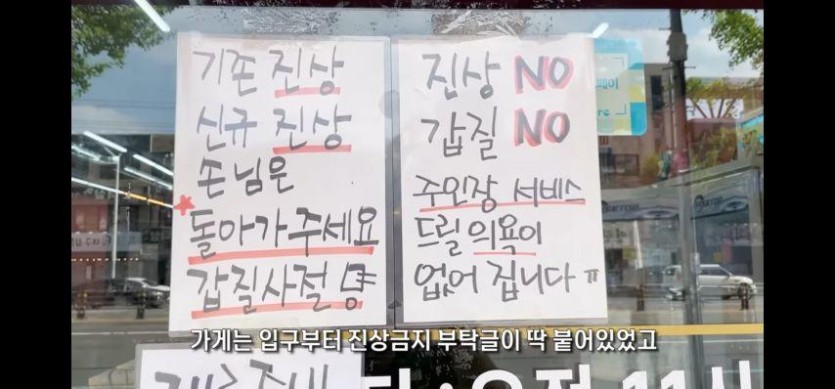 기존 진상
신규 진상
손님은
돌아가 주세요
갑질사절
진상 NO
갑질 NO
주인장 서비스
드릴 의욕이
없어 집니다 ㅠ
가게는 입구부터 진상금지 부탁글이 딱 붙어있었고